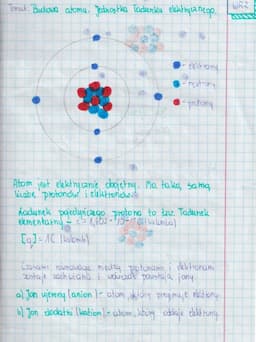 Temat: Budowa atomu. Jednostka ładunku elektrycznego.
- elektrony
- neutrony
- protony
Atom jest elektrycznie obojętny. Ma taką samą
liczbę protonów i elektronów.
Ładunek pojedynczego protonu to tzw. ładunek
elementarny -
[q] = 1C (kulomb)
Czasami równowaga między protonami i elektronami
zostaje zachwiana i wówczas powstają jony.
a) Jon ujemny (anion) - atom, który przyjmuje elektrony
b) Jon dodatni (kation) - atom, który oddaje elektrony